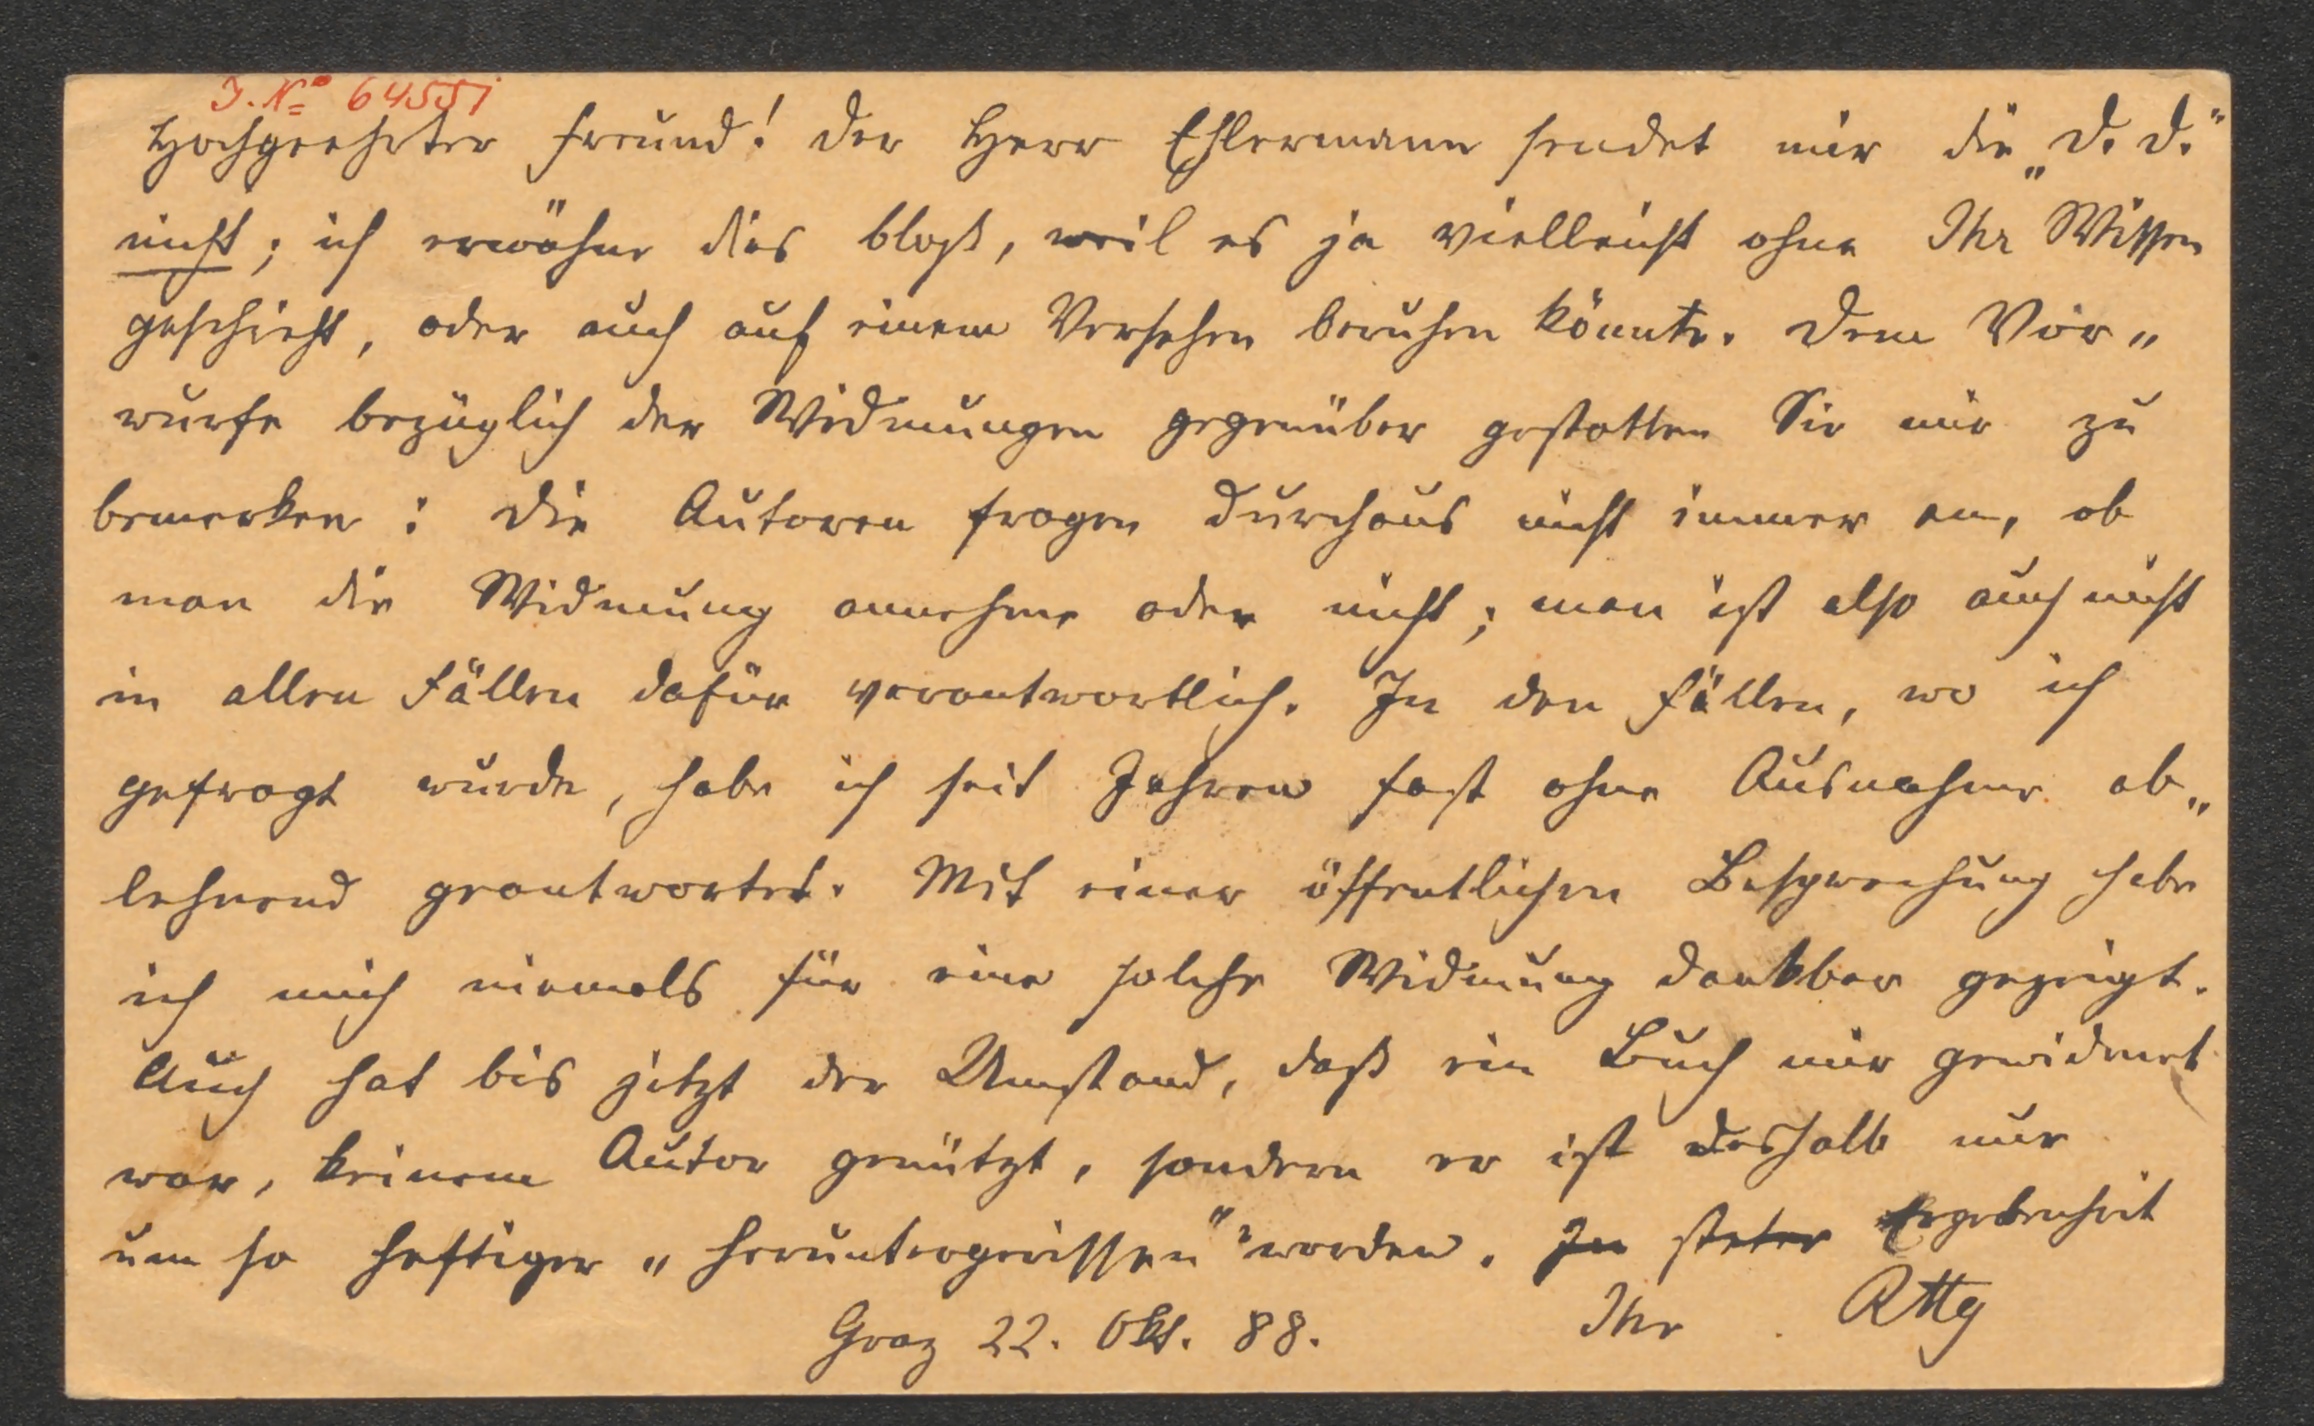 J. Nº 64551
Hochgeehrter Freund! Der Herr Ehlermann sendet mir die „D. D."
nicht; ich erwähne dies bloß, weil es ja vielleicht ohne Ihr Wissen
geschieht, oder auch auf einem Versehen beruhen könnte. Dem Vor„
wurfe bezüglich der Widmungen gegenüber gestatten Sie mir zu
bemerken: Die Autoren fragen durchaus nicht immer an, ob
man die Widmung annehme oder nicht; man ist also auch nicht
in allen Fällen dafür verantwortlich. In den Fällen, wo ich
gefragt wurde, habe ich seit Jahren fast ohne Ausnahme ab„
lehnend geantwortet. Mit einer öffentlichen Besprechung habe
ich mich niemals für eine solche Widmung dankbar gezeigt.
Auch hat bis jetzt der Umstand, daß ein Buch mir gewidmet
war, keinem Autor genützt, sondern er ist deshalb nur
um so heftiger „heruntergerissen" worden. In steter Ergebenheit
Graz 22. Okt. 88. Ihr